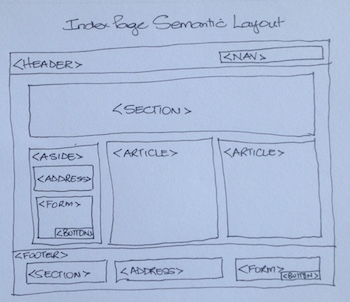 Index Page Semantic Layout
<HEADER>
<NAV>
<SECTION>
<ASIDE>
<ADDRESS>
<FORM>
<BUTTON>
<ARTICLE>
<ARTICLE>
<FOOTER>
<SECTION>
<ADDRESS>
<FORM>
<BUTTON>